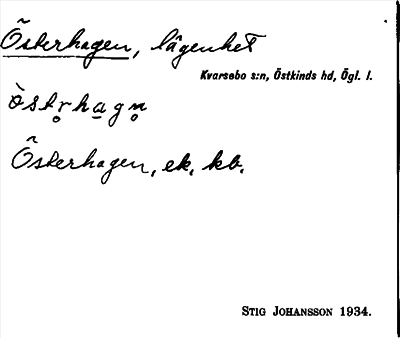 Österhagen, lägenhet
Kvarsebo s:n, Östkinds hd, Ögl. l.
òstr̥hag̲n̥
Österhagen, ek. kb.
STIG JOHANSSON 1934.